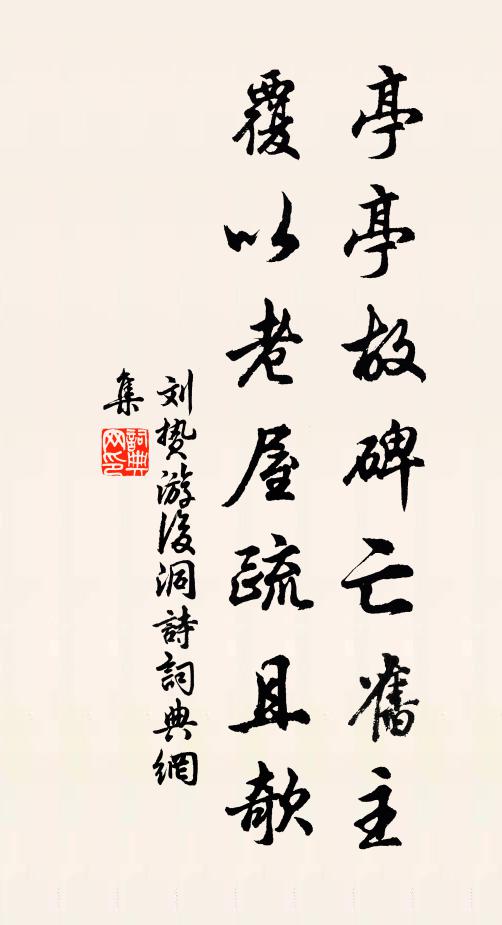 亭亭故碑亡舊主
覆以老屋疏且欹
刘摯游後洞詩詞典網
集
詞典網印